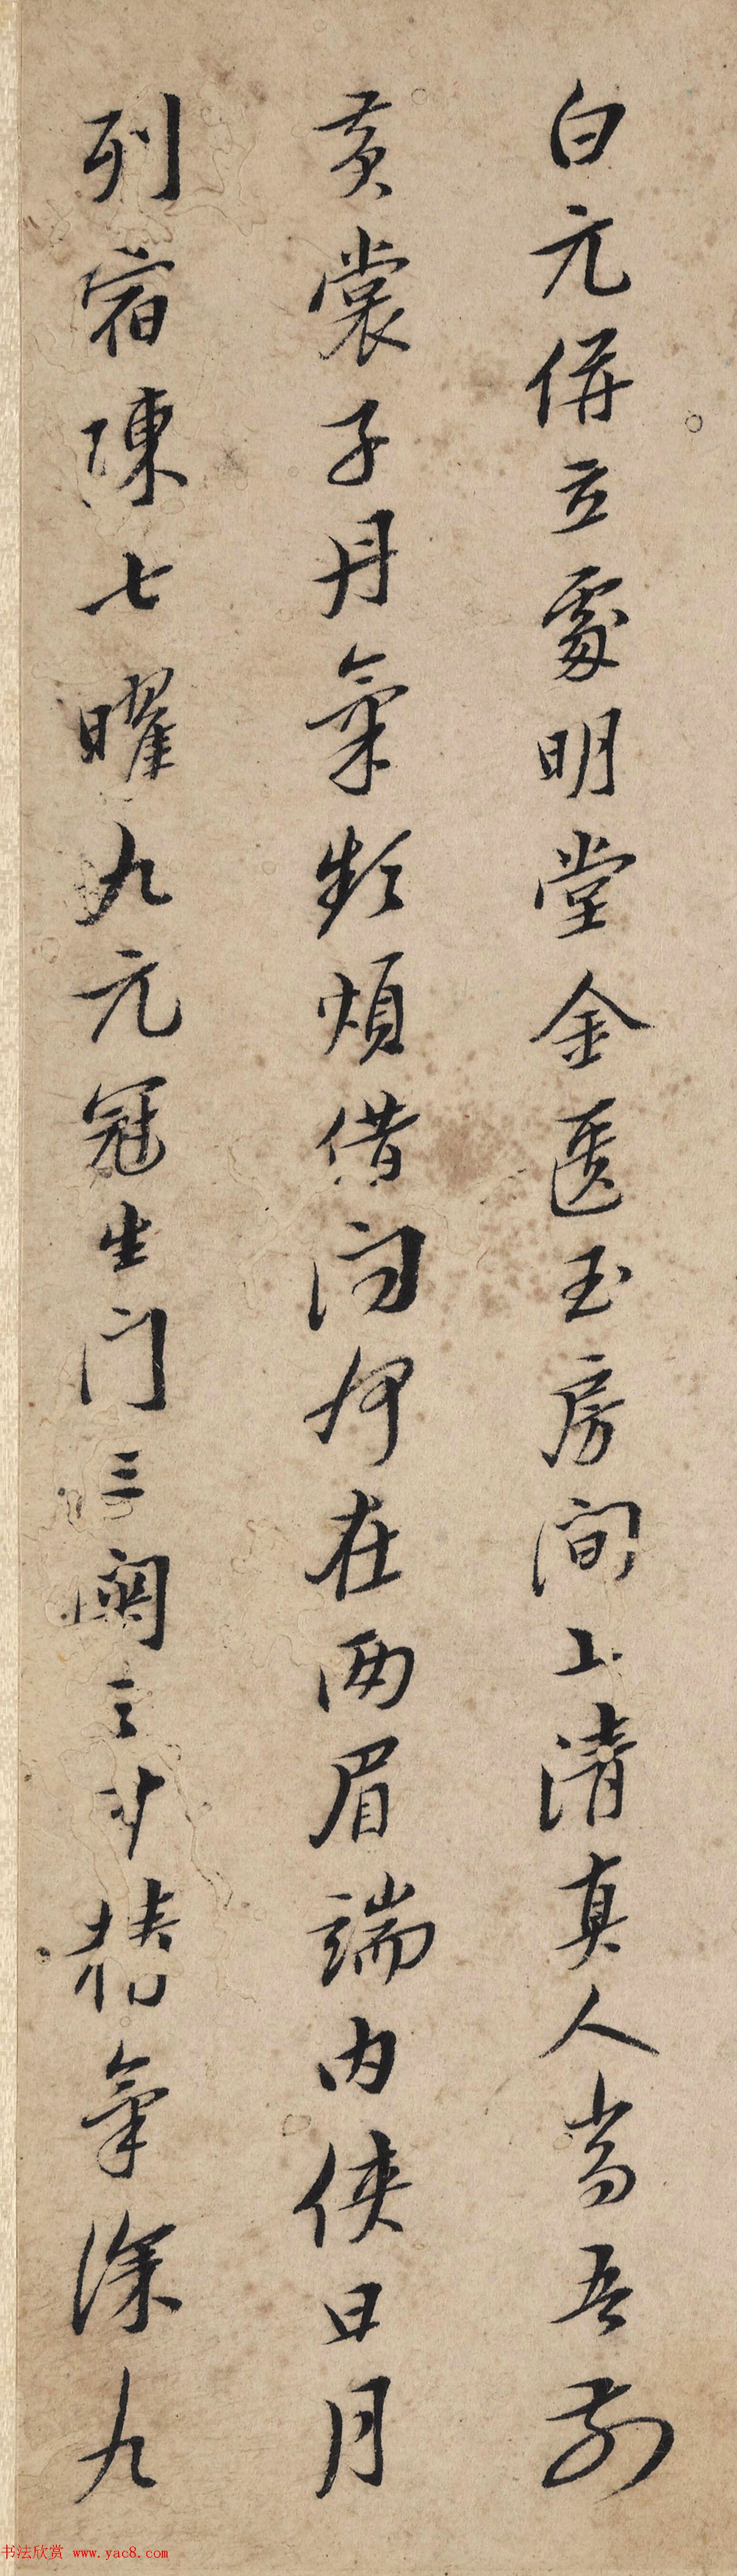 白元併立處明堂金匱玉房間上清真人當吾前
黃裳子丹氣數煩借問何在兩眉端內俠日月
列宿陳七曜九元冠生門三關之中精氣深九
书法欣赏 www.yac8.com